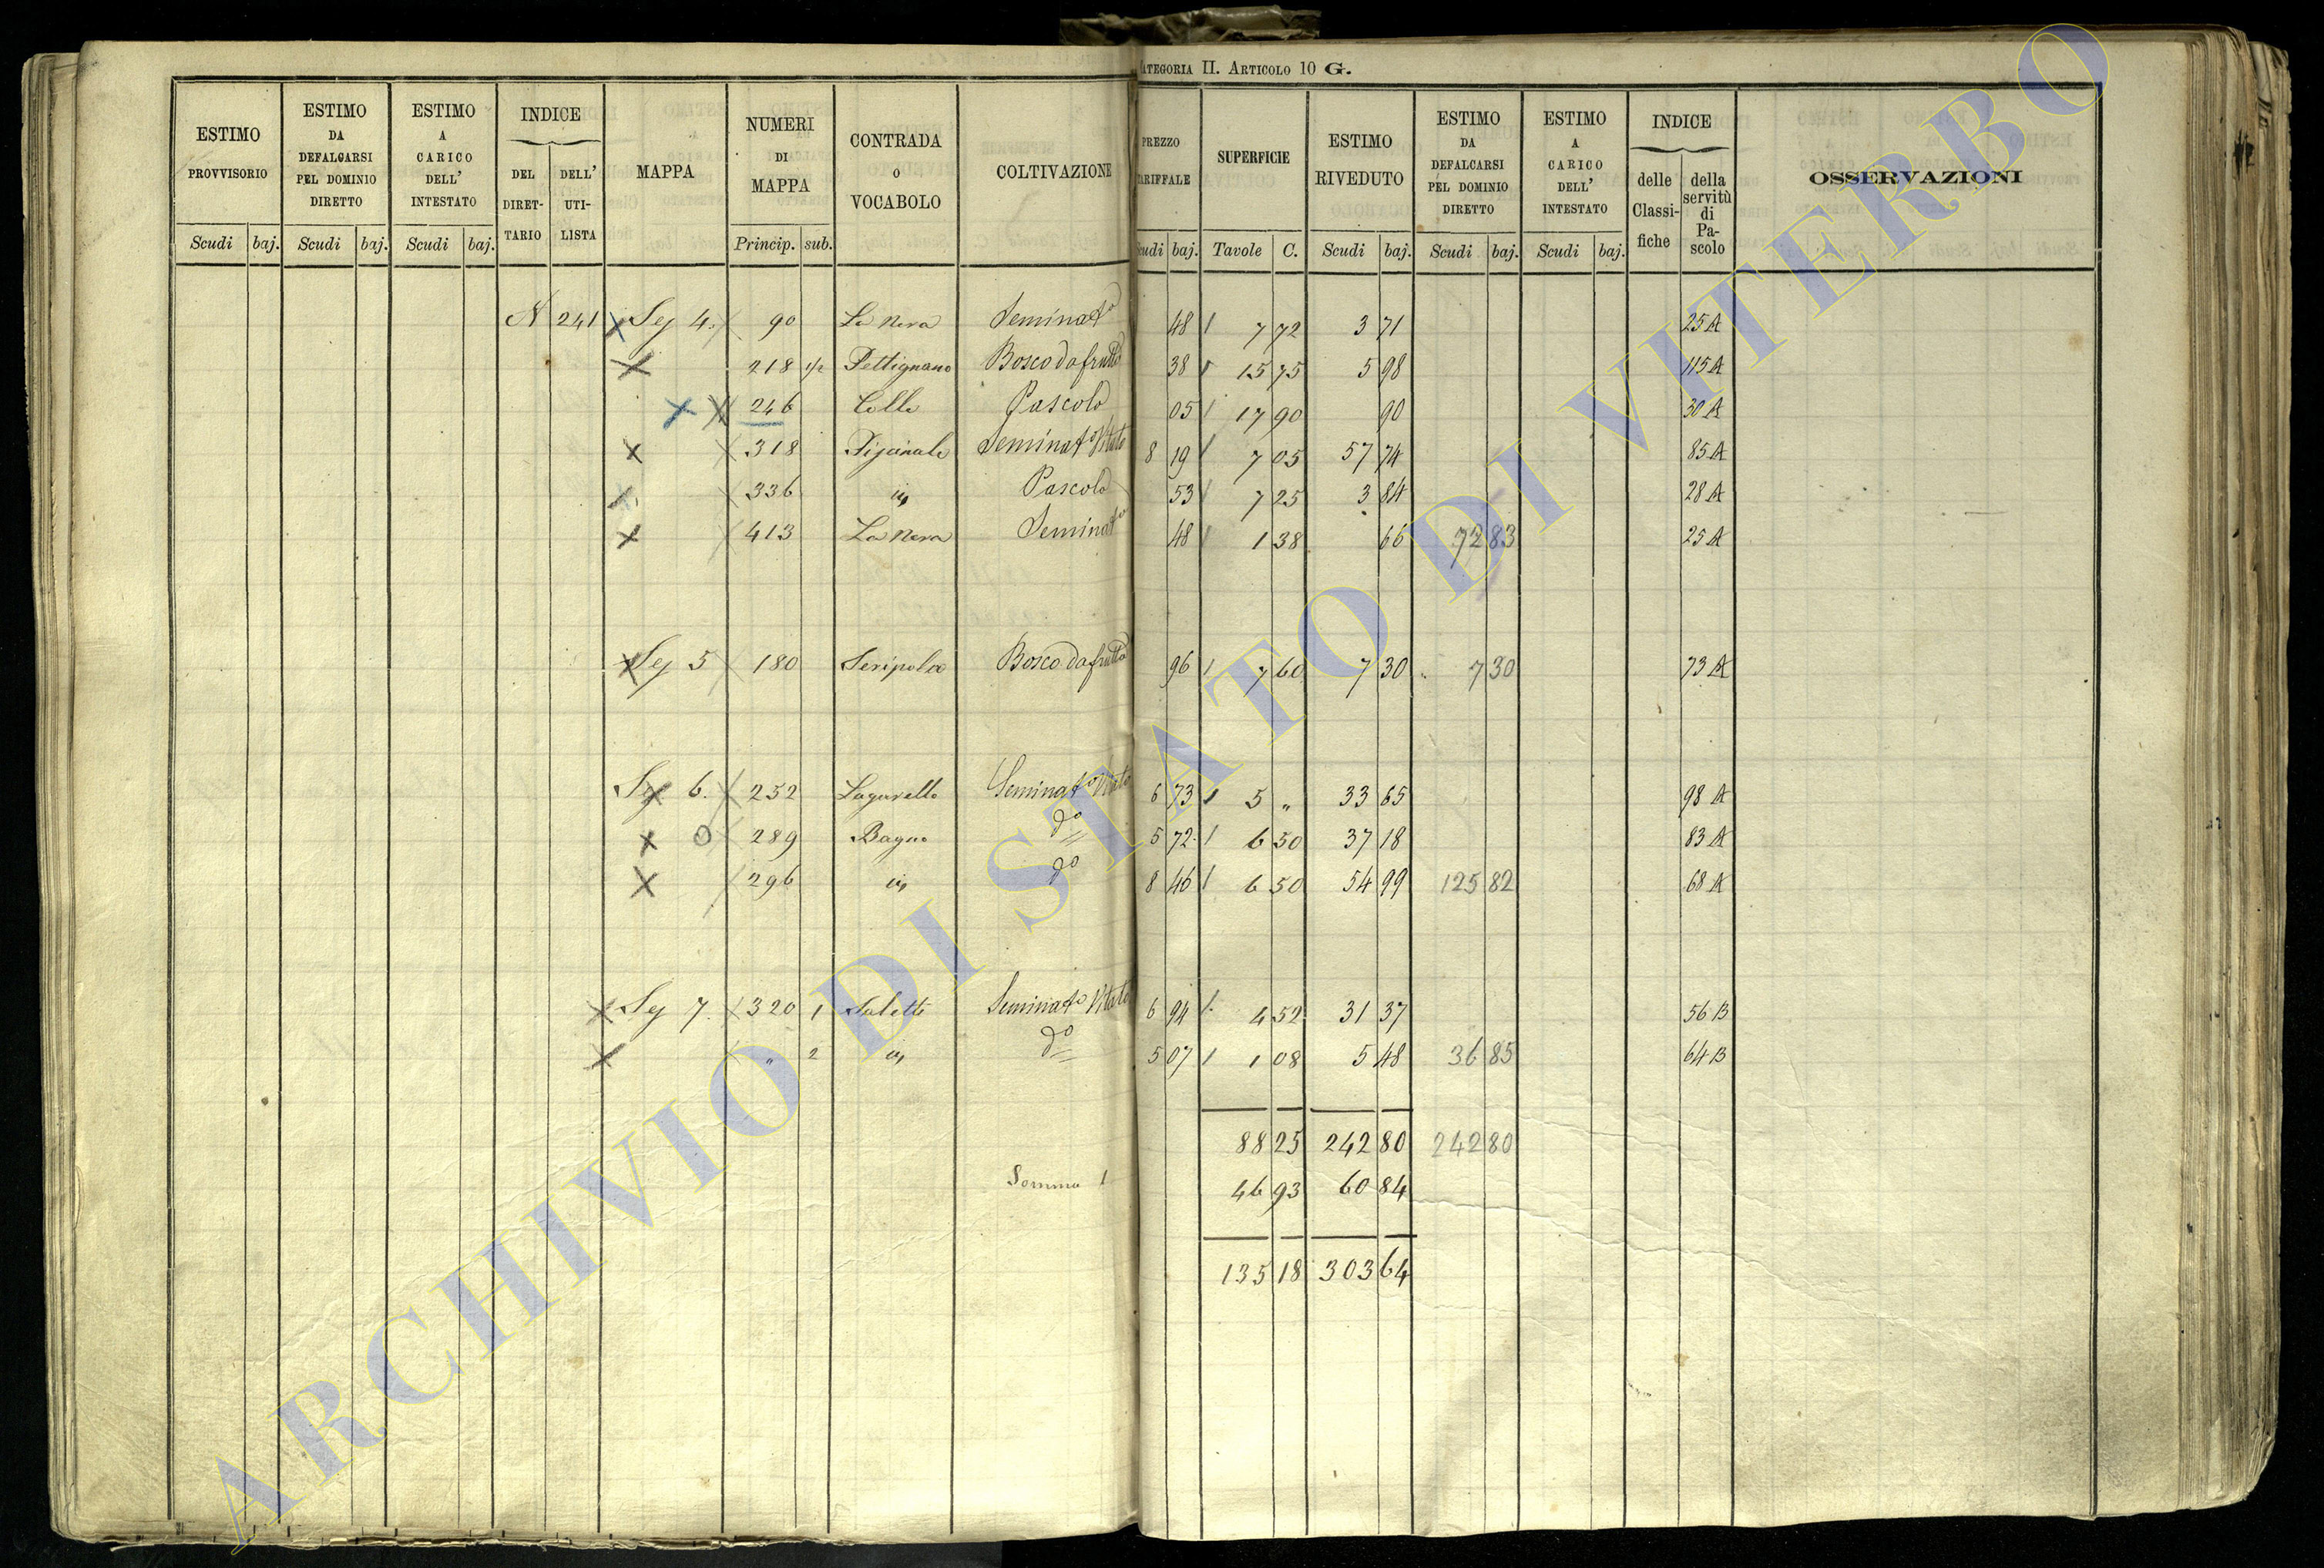 CATEGORIA II. ARTICOLO 10 G.
ESTIMO PROVVISORIO Scudi baj.
ESTIMO DA DEFALCARSI PEL DOMINIO DIRETTO Scudi baj.
ESTIMO A CARICO DELL' INTESTATO Scudi baj.
INDICE DEL DIRETTARIO DELL' UTILISTA
MAPPA
NUMERI DI MAPPA Princip. sub.
CONTRADA O VOCABOLO
COLTIVAZIONE
PREZZO TARIFFALE Scudi baj.
SUPERFICIE Tavole C.
ESTIMO RIVEDUTO Scudi baj.
ESTIMO DA DEFALCARSI PEL DOMINIO DIRETTO Scudi baj.
ESTIMO A CARICO DELL' INTESTATO Scudi baj.
INDICE delle Classifiche della servitù di Pascolo
OSSERVAZIONI
A 241 Sez 4. 90 La Nova Seminato 48 7 72 3 71 25 A
218 1/2 Pettignano Bosco da frutto 38 15 75 5 98 115 A
246 Colle Pascolo 05 17 90 90 30 A
318 Seminato Vitato 8 19 7 05 57 74 85 A
336 Pascolo 53 7 25 3 84 28 A
413 La Nova Seminato 48 1 38 66 72 83 25 A
Sez 5 180 Seripola Bosco da frutto 96 7 60 7 30 7 30 73 A
Sez 6. 252 Lagarello Seminato Vitato 6 73 5 " 33 65 98 A
289 Bagno do 5 72 6 50 37 18 83 A
296 do 8 46 6 50 54 99 125 82 68 A
Sez 7. 320 1 Saletti Seminato Vitato 6 94 4 52 31 37 56 B
" 2 do 5 07 1 08 5 48 36 85 64 B
88 25 242 80 242 80
Somma 1 46 93 60 84
135 18 303 64
ARCHIVIO DI STATO DI VITERBO